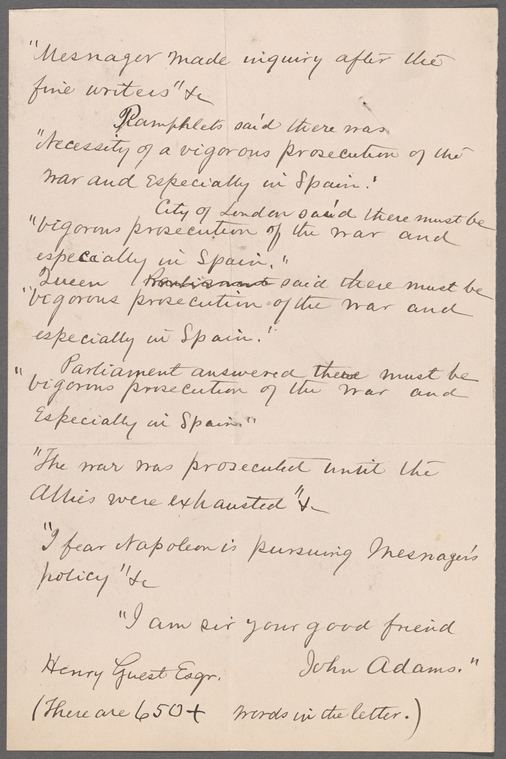 "Mesnager made inquiry after the
fine writers" &c
Pamphlets said there was
"Necessity of a vigorous prosecution of the
war and Especially in Spain."
City of London said there must be
"vigorous prosecution of the war and
especially in Spain."
Queen Parliament said there must be
"vigorous prosecution of the war and
especially in Spain."
Parliament answered there must be
"vigorous prosecution of the war and
Especially in Spain"
"The war was prosecuted until the
Allies were exhausted" &c
"I fear Napoleon is pursuing Mesnager's
policy" &c
"I am sir your good friend
Henry Guest Esqr. John Adams."
(There are 650+ words in the letter.)